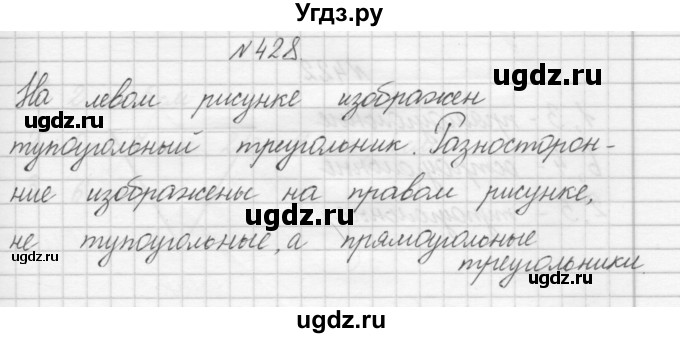 Угдз.ру
№428
На левом рисунке изображен
тупоугольный треугольник. Разносторон-
ние изображены на правом рисунке,
не тупоугольные, а прямоугольные
треугольники.
ugdz.ru
ugdz.ru
ugdz.ru
ugdz.ru
ugdz.ru
ugdz.ru
ugdz.ru
ugdz.ru